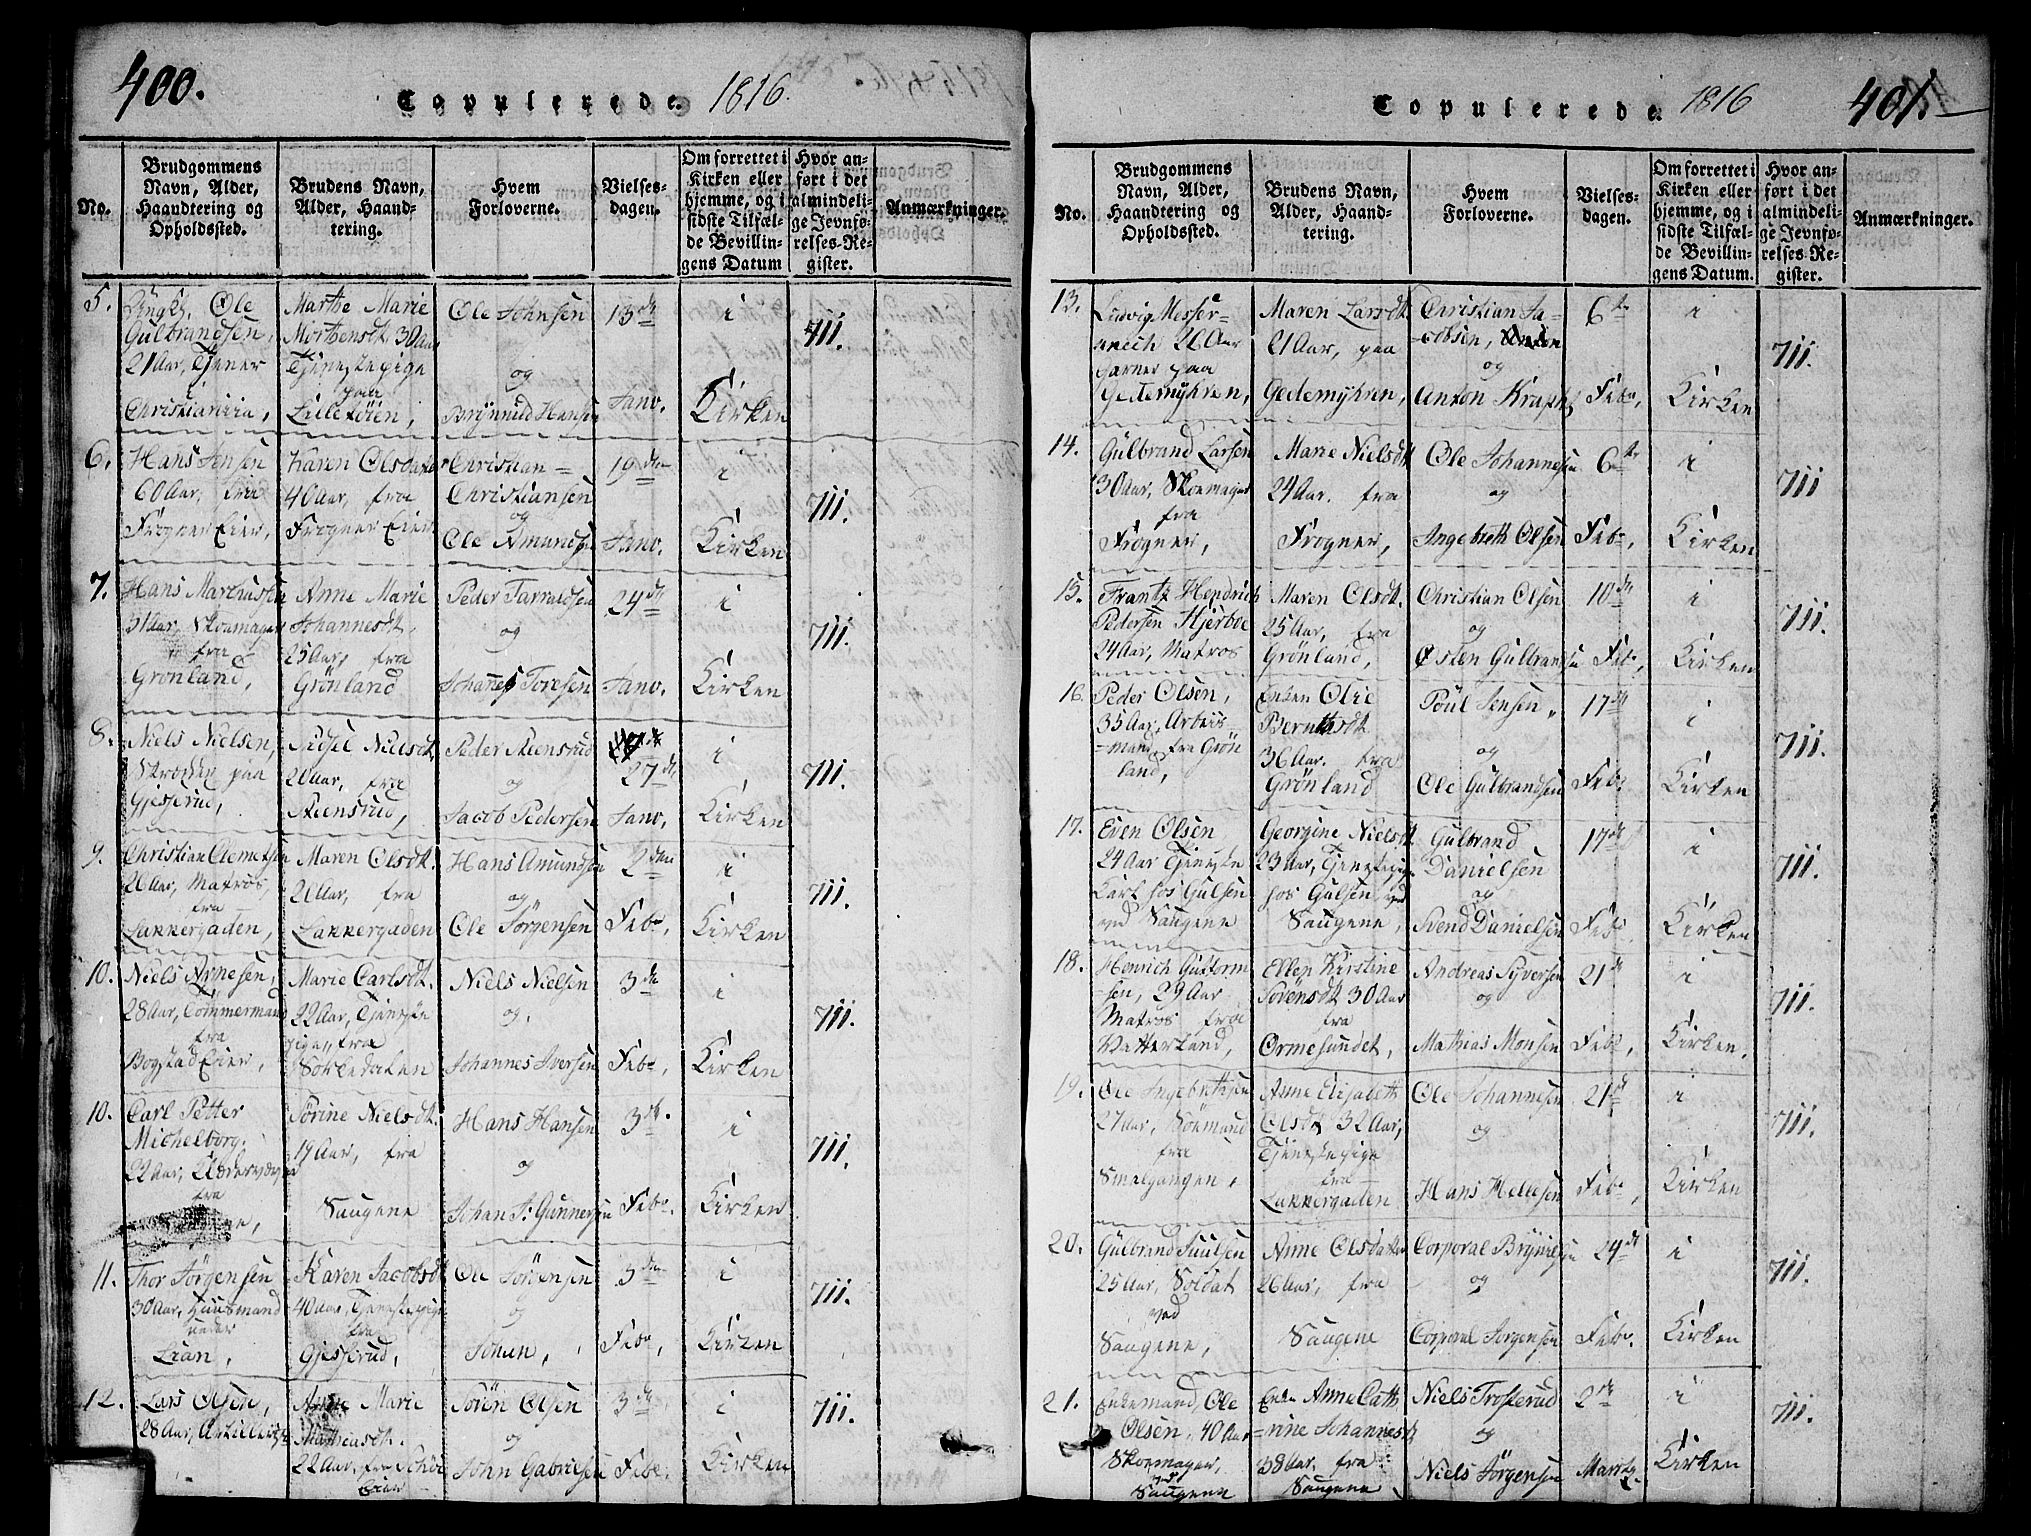 400.
Copulerede. 1816.
No.
Brudgommens
Navn, Alder,
Haandtering og
Opholdssted.
Brudens Navn,
Alder, Haand-
tering.
Hvem
Forloverne.
Vielses-
dagen.
Om forrettet i
Kirken eller
hjemme, og i
sidste Tilfæl-
de Bevillin-
gens Datum
Hvor an-
ført i det
almindeli-
ge Jevnfø-
relses-Re-
gister.
Anmærkninger.
5.
Ungk. Ole
Gulbrandsen,
21 Aar, Tjener
i
Christiania,
Marthe Marie
Mortensdt. 30 Aar
Tjenestepige
paa
Lilletöien,
Ole Johnsen
og
Brÿnnild Hansen
13de
Janv.
i
Kirken
711.
6.
Hans Jensen
60 Aar, fra
Frogner Eier,
Karen Olsdatter
40 Aar, fra
Frogner Eier
Christian
Christiansen
og
Ole Amundsen
19den
Janv.
i
Kirken
711.
7.
Hans Marthiussen
31 Aar, Skoemager
fra
Grönland,
Anne Marie
Johannesdt,
25 Aar, fra
Grönland
Peder Tarraldsen
og
Johannes Toresen
24de
Janv.
i
Kirken
711.
8.
Niels Nielsen,
paa
Gjesserud,
Sidsel Nielsdt
20 Aar, fra
Steensrud,
Peder Steensrud
og
Jacob Pedersen
27de
Janv.
i
Kirken
711.
9.
Christian Clemetsen
26 Aar, Matros,
fra
Lakkergaden,
Maren Olsdt.
21 Aar, fra
Lakkergaden
Hans Amundsen
og
Ole Jörgensen
2den
Febr.
i
Kirken
711.
10.
Niels Arnesen,
28 Aar, Tömmermand
fra
Bogstad Eier,
Marie Carlsdt.
22 Aar, Tjeneste
pige, fra
Sörkedalen
Niels Nielsen
og.
Johannes Iversen
3de
Febr,
i
Kirken
711.
10.
Carl Petter
Michelborg.
22 Aar,
fra
Sörine Nielsdt.
19 Aar, fra
Saugene
Hans Hansen
og
Johan J: Gunnersen
3de.
Febr.
i
Kirken
711.
11.
Thor Jörgensen
30 Aar, Huusmand
under
Lian,
Karen Jacobsdt
40 Aar, Tjenestepige
fra
Gjesserud,
Ole Jörgensen
og
Johan,
3den
Febr,
i
Kirken
711.
12.
Lars Olsen,
28 Aar,
Anne Marie
Mathiasdt.
22 Aar, fra
Eier
Sören Olsen
og
John Gabrielsen
3de
Febr.
i
Kirken
711.
Copulerede. 1816
401.
No.
Brudgommens
Navn, Alder,
Haandtering og
Opholdssted.
Brudens Navn,
Alder, Haand-
tering.
Hvem
Forloverne.
Vielses-
dagen.
Om forrettet i
Kirken eller
hjemme, og i
sidste Tilfæl-
de Bevillin-
gens Datum.
Hvor an-
ført i det
almindeli-
ge Jevnfø-
relses-Re-
gister.
Anmærkninger.
13.
Ludvig Messer-
26 Aar
paa
Gedemÿhren,
Maren Larsdt.
21 Aar, paa
Gedemÿhren,
Christian Ja-
cobsen,
og
Anton Krapht,
6te
Febr,
i
Kirken
711.
14.
Gülbrand Larsen
30 Aar, Skoemager
fra
Frogner,
Marie Nielsdt
24 Aar. fra
Frogner,
Ole Johannesen
og
Ingebreth Olsen
6te
Febr,
i
Kirken
711
15.
Frantz Hendrich
Pedersen Hjerboe
24 Aar, Matros
Maren Olsdt.
25 Aar, fra
Grönland,
Christian Olsen
og
Østen Gulbransen
10de
Febr,
i
Kirken
711.
16.
Peder Olsen,
35 Aar, Arbeids-
mand, fra Grön
land,
Enken Olie
Bernthsdt.
36 Aar. fra
Grönland
Poul Jensen,
og
Ole Gülbrandsen
17de
Febr.
i
Kirken
711.
17.
Even Olsen
24 Aar Tjeneste
Karl hos Gulsen
ved Saugene
Georgine Nielsdt
23 Aar, Tjenestepige
hos Gulsen, ved
Saugene,
Gülbrand
Danielsen
og
Svend Danielsen
17de
Febr.
i
Kirken
711.
18.
Henrich Guttorm
sen, 29 Aar
Matros fra
Vatterland,
Ellen Kirstine
Sörensdt. 30 Aar
fra
Ormesundet,
Andreas Syversen
og
Mathias Monsen
21de
Febr,
i
Kirken.
711.
19.
Ole Ingebrethsen
27 Aar, Sömand
fra
Smalgangen,
Anne Elisabeth
Olsdt. 32 Aar,
Tjenestepige
fra
Lakkergaden
Ole Johannesen
og
Hans Hellesen
21de
Febr,
i
Kirken
711.
20.
Gülbrand Juulsen
25 Aar, Soldat
ved
Saugene,
Anne Olsdatter
26 Aar, fra
Saugene
Corporal Brÿnildsen
og
Corporal Jorgensen
24de
Febr.
i
Kirken
711.
21.
Enkemand, Ole
Olsen, 40 Aar
Skoemager,
ved
Saugene
Enken Anne Cath-
rine Johannesdt
38 Aar. fra
Saugene
Niels Trosterud
og
Niels Jörgensen
2de
Martz.
i
Kirken
711.